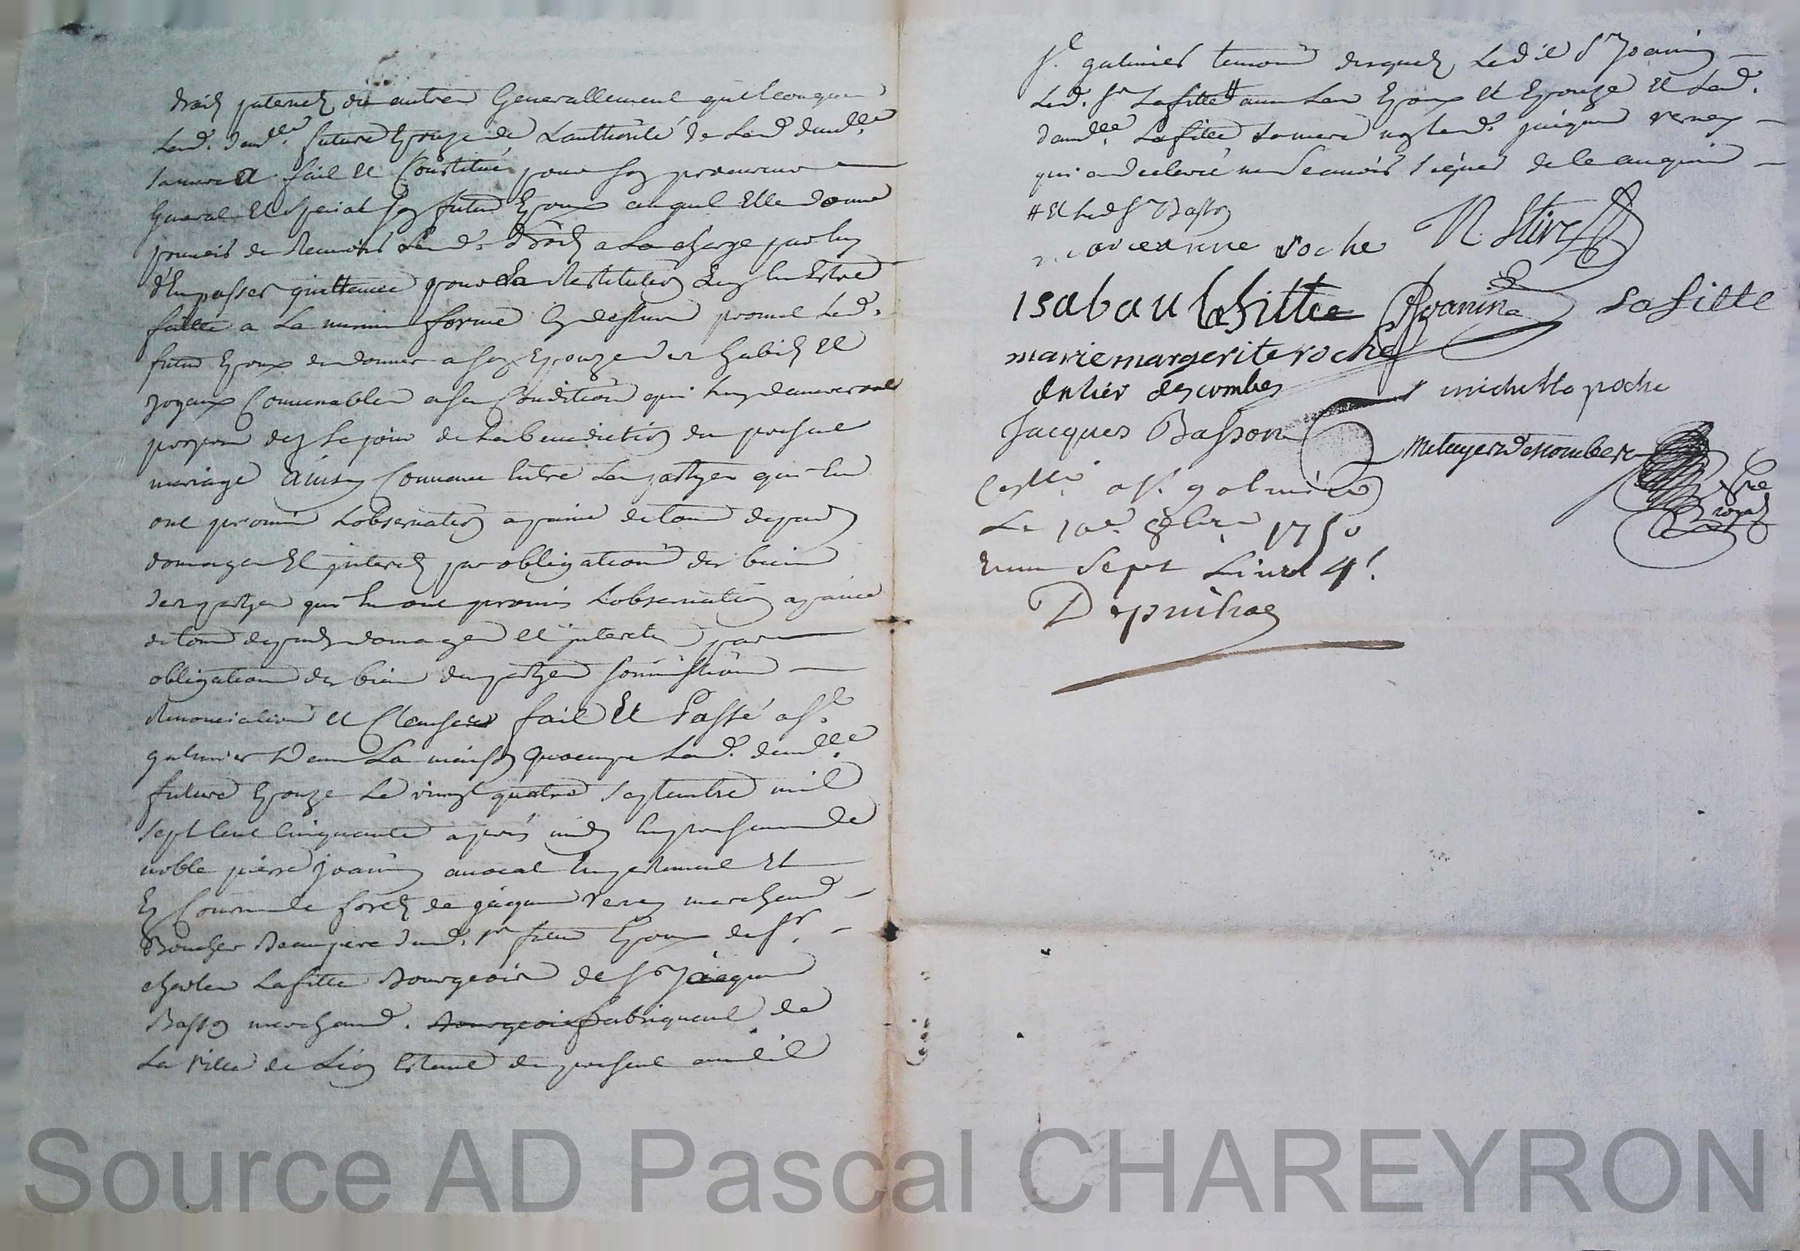 droits paternels ou autres Generallement quelconques
Lad. dam.lle future Epouze de Lauthorité de Lad. dam.lle
sa mere a fait et Constitué pour son procureur
General Et Special son futur Epoux auquel Elle donne
pouvoir de Recevoir Lesd. droits a La charge par luy
d'En passer quittance pour La Restitution En Estre
faitte a La meme forme
futur Epoux de donner a son Epouze des habits et
joyaux Convenables a sa Condition qui luy demeureront
propres dez Le jour de La benediction du present
mariage Ainsy Convenu Entre Les partyes qui En
ont promis Lobservation a peine de tous depens
domages Et interets par obligation des biens
des partyes qui En ont promis Lobservation a peine
de tous depens domages et interets par
obligation des biens des partyes soumissions
Renonciations et Clauses fait Et Passé a St.
galmier Dans La maison quocupe Lad. dam.lle
future Epouze Le vingt quatre septembre mil
sept Cent Cinquante apres midy En presence de
noble pierre Joanin avocat En parlement Et
En Cour de forets de jacques Verney marchand
Boucher Beaupere dud. sr futur Epoux de Sr.
charles Lafitte Bourgeois de Sr Jacques
Basson marchand. Bourgeois fabriquant de
La Ville de Lion Estant de present aud. lieu
St. galmier temoins desquels Ledit Sr Joanin
Led. Sr Lafitte # avec Les Epoux et Epouze Et Lad.
dam.lle Lafitte sa mere non Led. jacques verney
qui a declaré ne Scavoir signer de ce enquis
# Et led Sr Basson
marceanne roche N. Stive
Isabau Lafitte Joanin Lafitte
marie margerite roche
dulier descombes michelle poche
Jacques Basson Metayer Descombes
Conlle. a St. galmier Nre royal
Le 10e 8bre 1750
Recu Sept Livres 4 s.
Depuihas
Source AD Pascal CHAREYRON